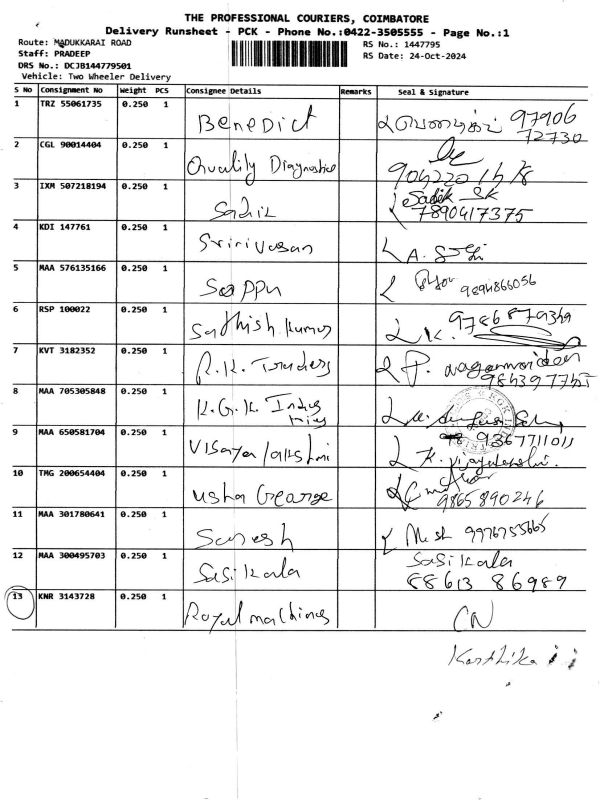 THE PROFESSIONAL COURIERS, COIMBATORE
Delivery Runsheet - PCK - Phone No.:0422-3505555 - Page No.:1
Route: MADUKKARAI ROAD
RS No.: 1447795
Staff: PRADEEP
RS Date: 24-Oct-2024
DRS No.: DCJB144779501
Vehicle: Two Wheeler Delivery
S No Consignment No Weight PCS Consignee Details Remarks Seal & Signature
1 TRZ 55061735 0.250 1 Benedict 97906
72730
2 CGL 90014404 0.250 1 Quality Diagnostic
3 IXM 507218194 0.250 1 Sadik Sadik Sk
7890417375
4 KDI 147761 0.250 1 Srinivasan
5 MAA 576135166 0.250 1 Sappu 9894866056
6 RSP 100022 0.250 1 Sathish kumar
7 KVT 3182352 0.250 1 R.K. Traders
8 MAA 705305848 0.250 1 K.G.K. Indus
tries
9 MAA 650581704 0.250 1 Visaya lakshmi 9367711011
K. Vijayalakshmi.
10 TMG 200654404 0.250 1 usha George
9865890246
11 MAA 301780641 0.250 1 Suresh 9976755665
12 MAA 300495703 0.250 1 Sasikala Sasikala
88613 86989
13 KNR 3143728 0.250 1 Royal machines CN
Karthika